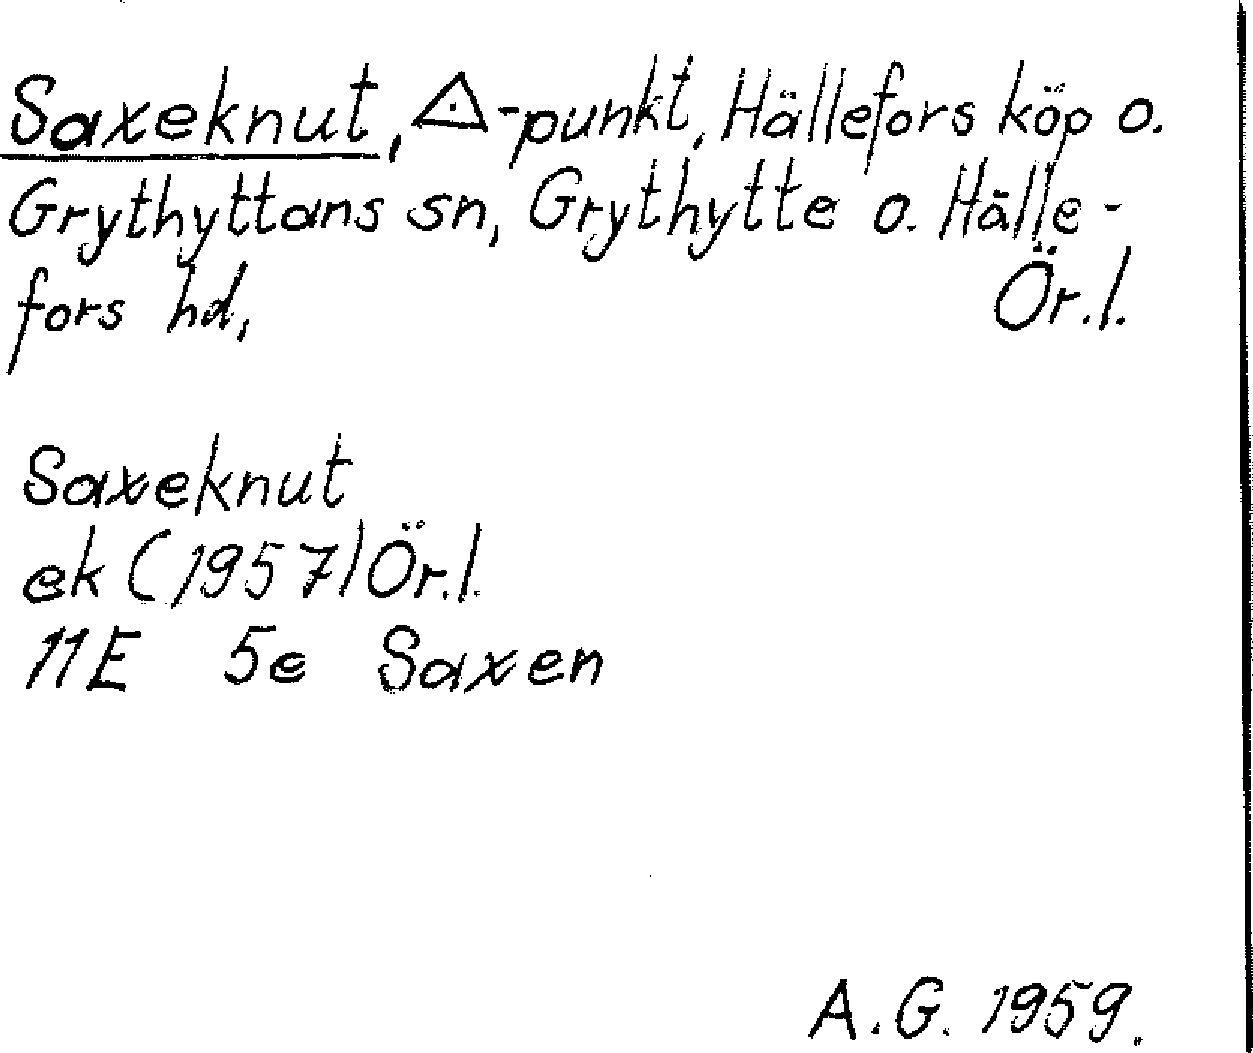 Saxeknut, △-punkt, Hällefors köp o.
Grythyttans sn, Grythytte o. Hälle-
fors hd, Ör.l.
Saxeknut
ek (1957) Ör.l.
11E 5e Saxen
A.G. 1959.